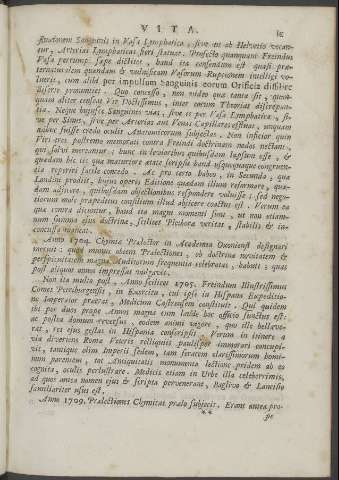 VITA.
fluxionem Sanguinis in Vasa Lymphatica, sive ut ab Helvetio vocantur, Arterias Lymphaticas fieri statuat. Profecto quamquam Freindus
Vasa perrumpi sæpe dicitet, haud ita consendum est quasi præternaturalem
quandam & Vasorum Rupcionem intelligi voluerit
cum alibi per impulsum Sanguinis eorum Orificia
diserte pronuntiet. Quo concesso, non video qua tanta sit, quamquam aliter censeat Vir Doctissimus, inter eorum Theorias
Neque hujusce Sanguinis viæ, sive it per Vasa Lymphatica, sive per Sinus, sive per Arterias aut Venas Capillares effusus, unquam
fuisse credo oculis Anatomicorum subjectas. Non inficior quin
Viri ejus postremo memorati contra Freindi doctrinam nodos nectant,
qui solvi mereantur: hunc in levioribus quibusdam lapsum esse, &
quædam hic iis quæ maturiore ætate scripsit haud usquequaque
reperiri facile concedo. Ac pro certo habeo, in Secunda, quæ
Londini prodiit, hujus operis Editione quædam illum reformare, quædam
adjicere, quibusdam objectionibus respondere voluisse: sed negotiorum
mole præpeditum consilium illud abjicere coactus est. Verum ea
quæ contra dicuntur, haud ita magni momenti sunt, ut non etiamnum
summa ejus doctrina, scilicet Plethora veritas, stabilis & inconcussa
maneat.
Anno 1704. Chymiæ Prælector in Academia Oxoniensi designari
meruit: quo munus obiens Prælectiones, ob doctrinæ novitatem &
perspicuitatem magna Auditorum frequentia celebratas, habuit; quas
post aliquot annos impressas vulgavit.
Non ita multo post, Anno scilicet 1705. Freindum Illustrissimus
Comes Peterburgensis, in Exercitu, cui ipse in Hispana Expeditione
Imperator præerat, Medicum Castrensem constituit. Qui quidem
ibi per duos prope Annos magna cum laude hoc officio functus est:
ac postea domum reversus, eodem animi vigore, quo ille bellaverat,
rei ejus gestas in Hispania conscripsit. Verum in itinere a
via divertens Roma Veteris reliquiis paulisper immorari concupivit,
tanquam olim Imperii sedem, tam feracem clarissimorum hominum
parentem, tot Antiquitatis monumenta lectione pridem ab eo
cognita, oculis perlustrare. Medicis etiam in Urbe illa celeberrimis,
ad quos antea nomen ejus & scripta pervenerant, Baglivo & Lancisio
familiariter usus est.
Anno 1709. Prælectiones Chymicas prælo subjecit. Erant antea pro-
**
pe